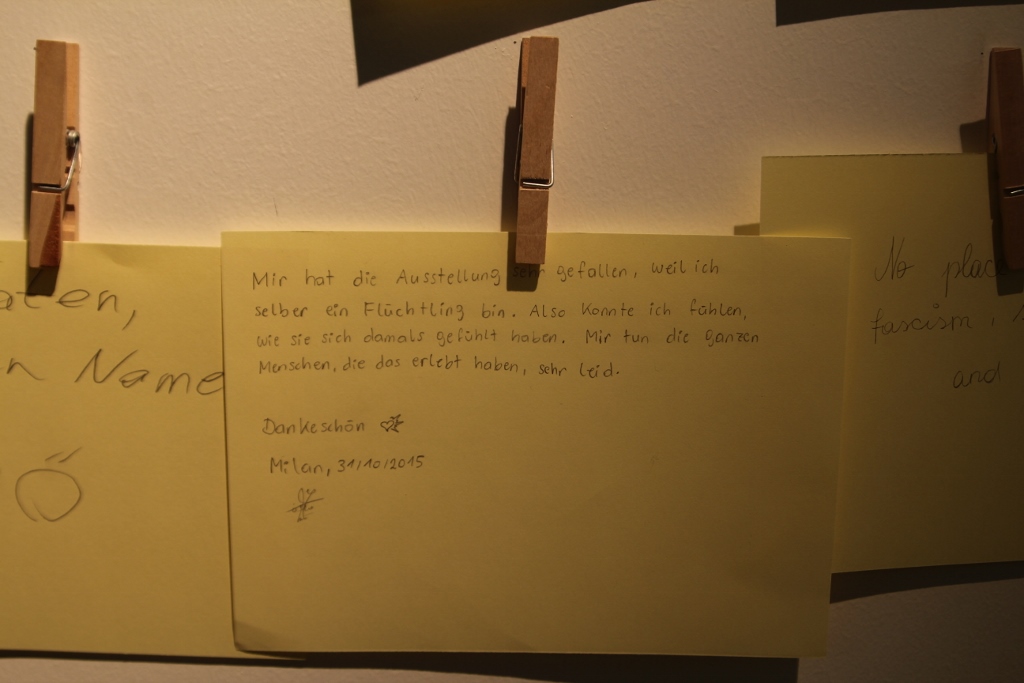 aten,
n Name
Ö
Mir hat die Ausstellung sehr gefallen, weil ich
selber ein Flüchtling bin. Also konnte ich fühlen,
wie sie sich damals gefühlt haben. Mir tun die ganzen
Menschen, die das erlebt haben, sehr leid.
Dankeschön
Milan, 31/10/2015
No place
fascism,
and